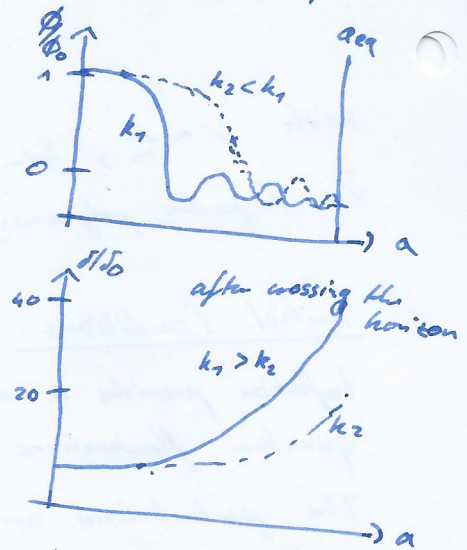 Φ/Φ₀
a_eq
1
k₂ < k₁
k₁
0
a
δ/δ₀
40
after crossing the
horizon
k₁ > k₂
20
k₂
a